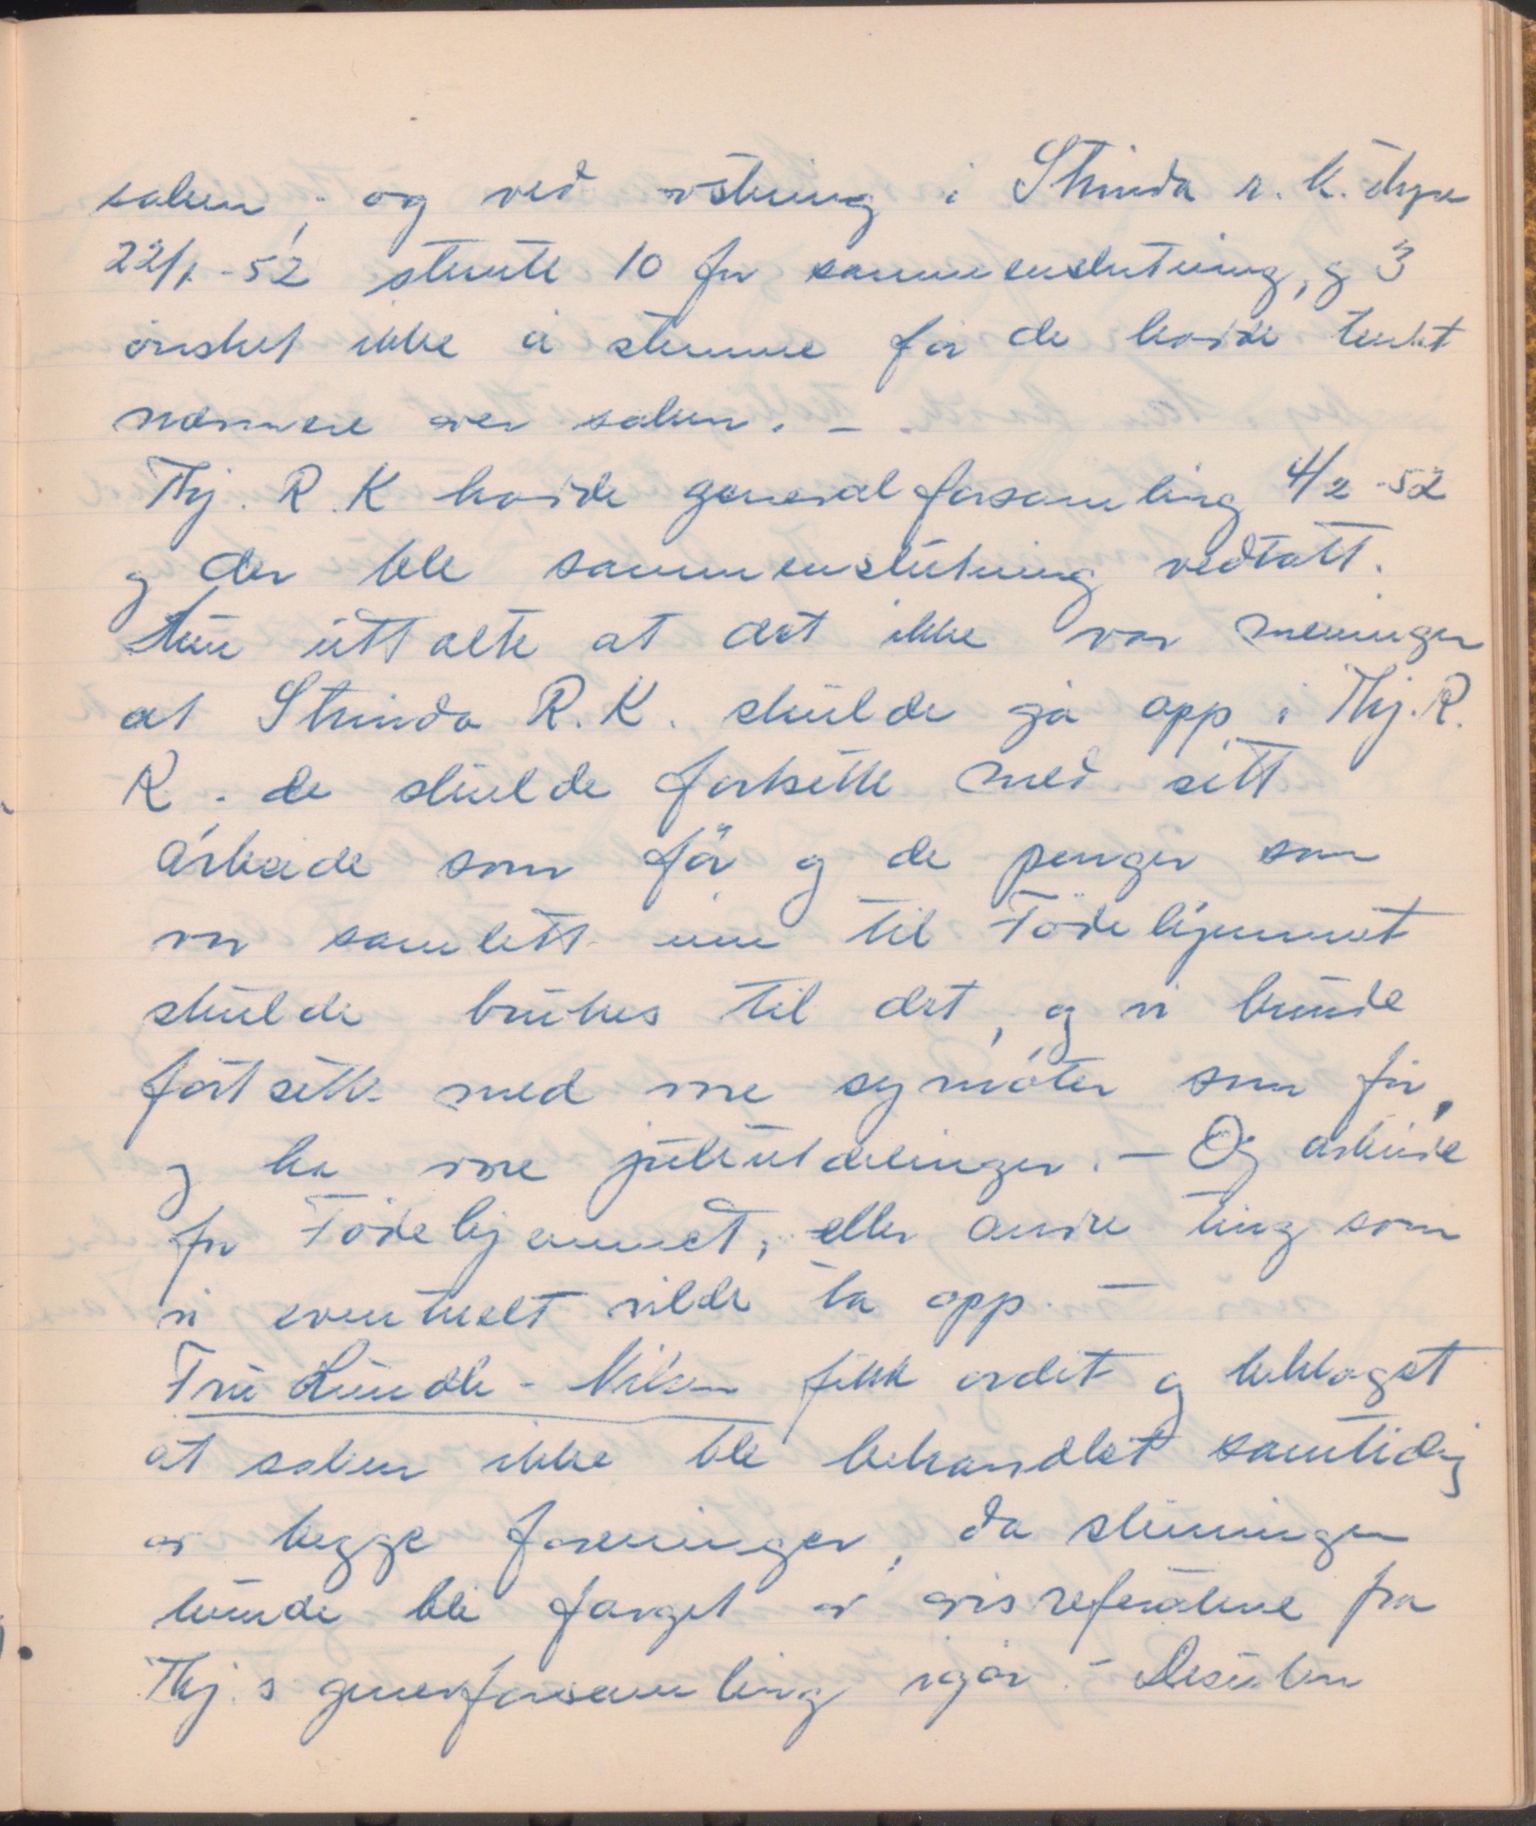 saken, og ved votering i Strinda R.K. styre
22/1-52 stemte 10 for sammenslutning, og 3
ønsket ikke å stemme før de havde tenkt
nærmere over saken. -
Thj. R.K havde generalforsamling 4/2-52
og der ble sammenslutning vedtatt.
Hun uttalte at det ikke var meningen
at Strinda R.K. skulde gå opp i Thj.R.
K. de skulde fortsette med sitt
arbeide som før og de penger som
var samlett inn til Fødehjemmet
skulde brukes til det, og vi kunde
fortsette med våre symøter som før,
og ha våre juleutdelinger. - Og arbeide
for Fødehjemmet, eller andre ting som
vi eventuelt vilde ta opp. -
Fru Lunde-Nilsen fikk ordet og beklaget
at saken ikke ble behandlet samtidig
av begge foreninger, da stemningen
kunde bli farget av avisreferatene fra
Thj.s generforsamling igår. - Desuten